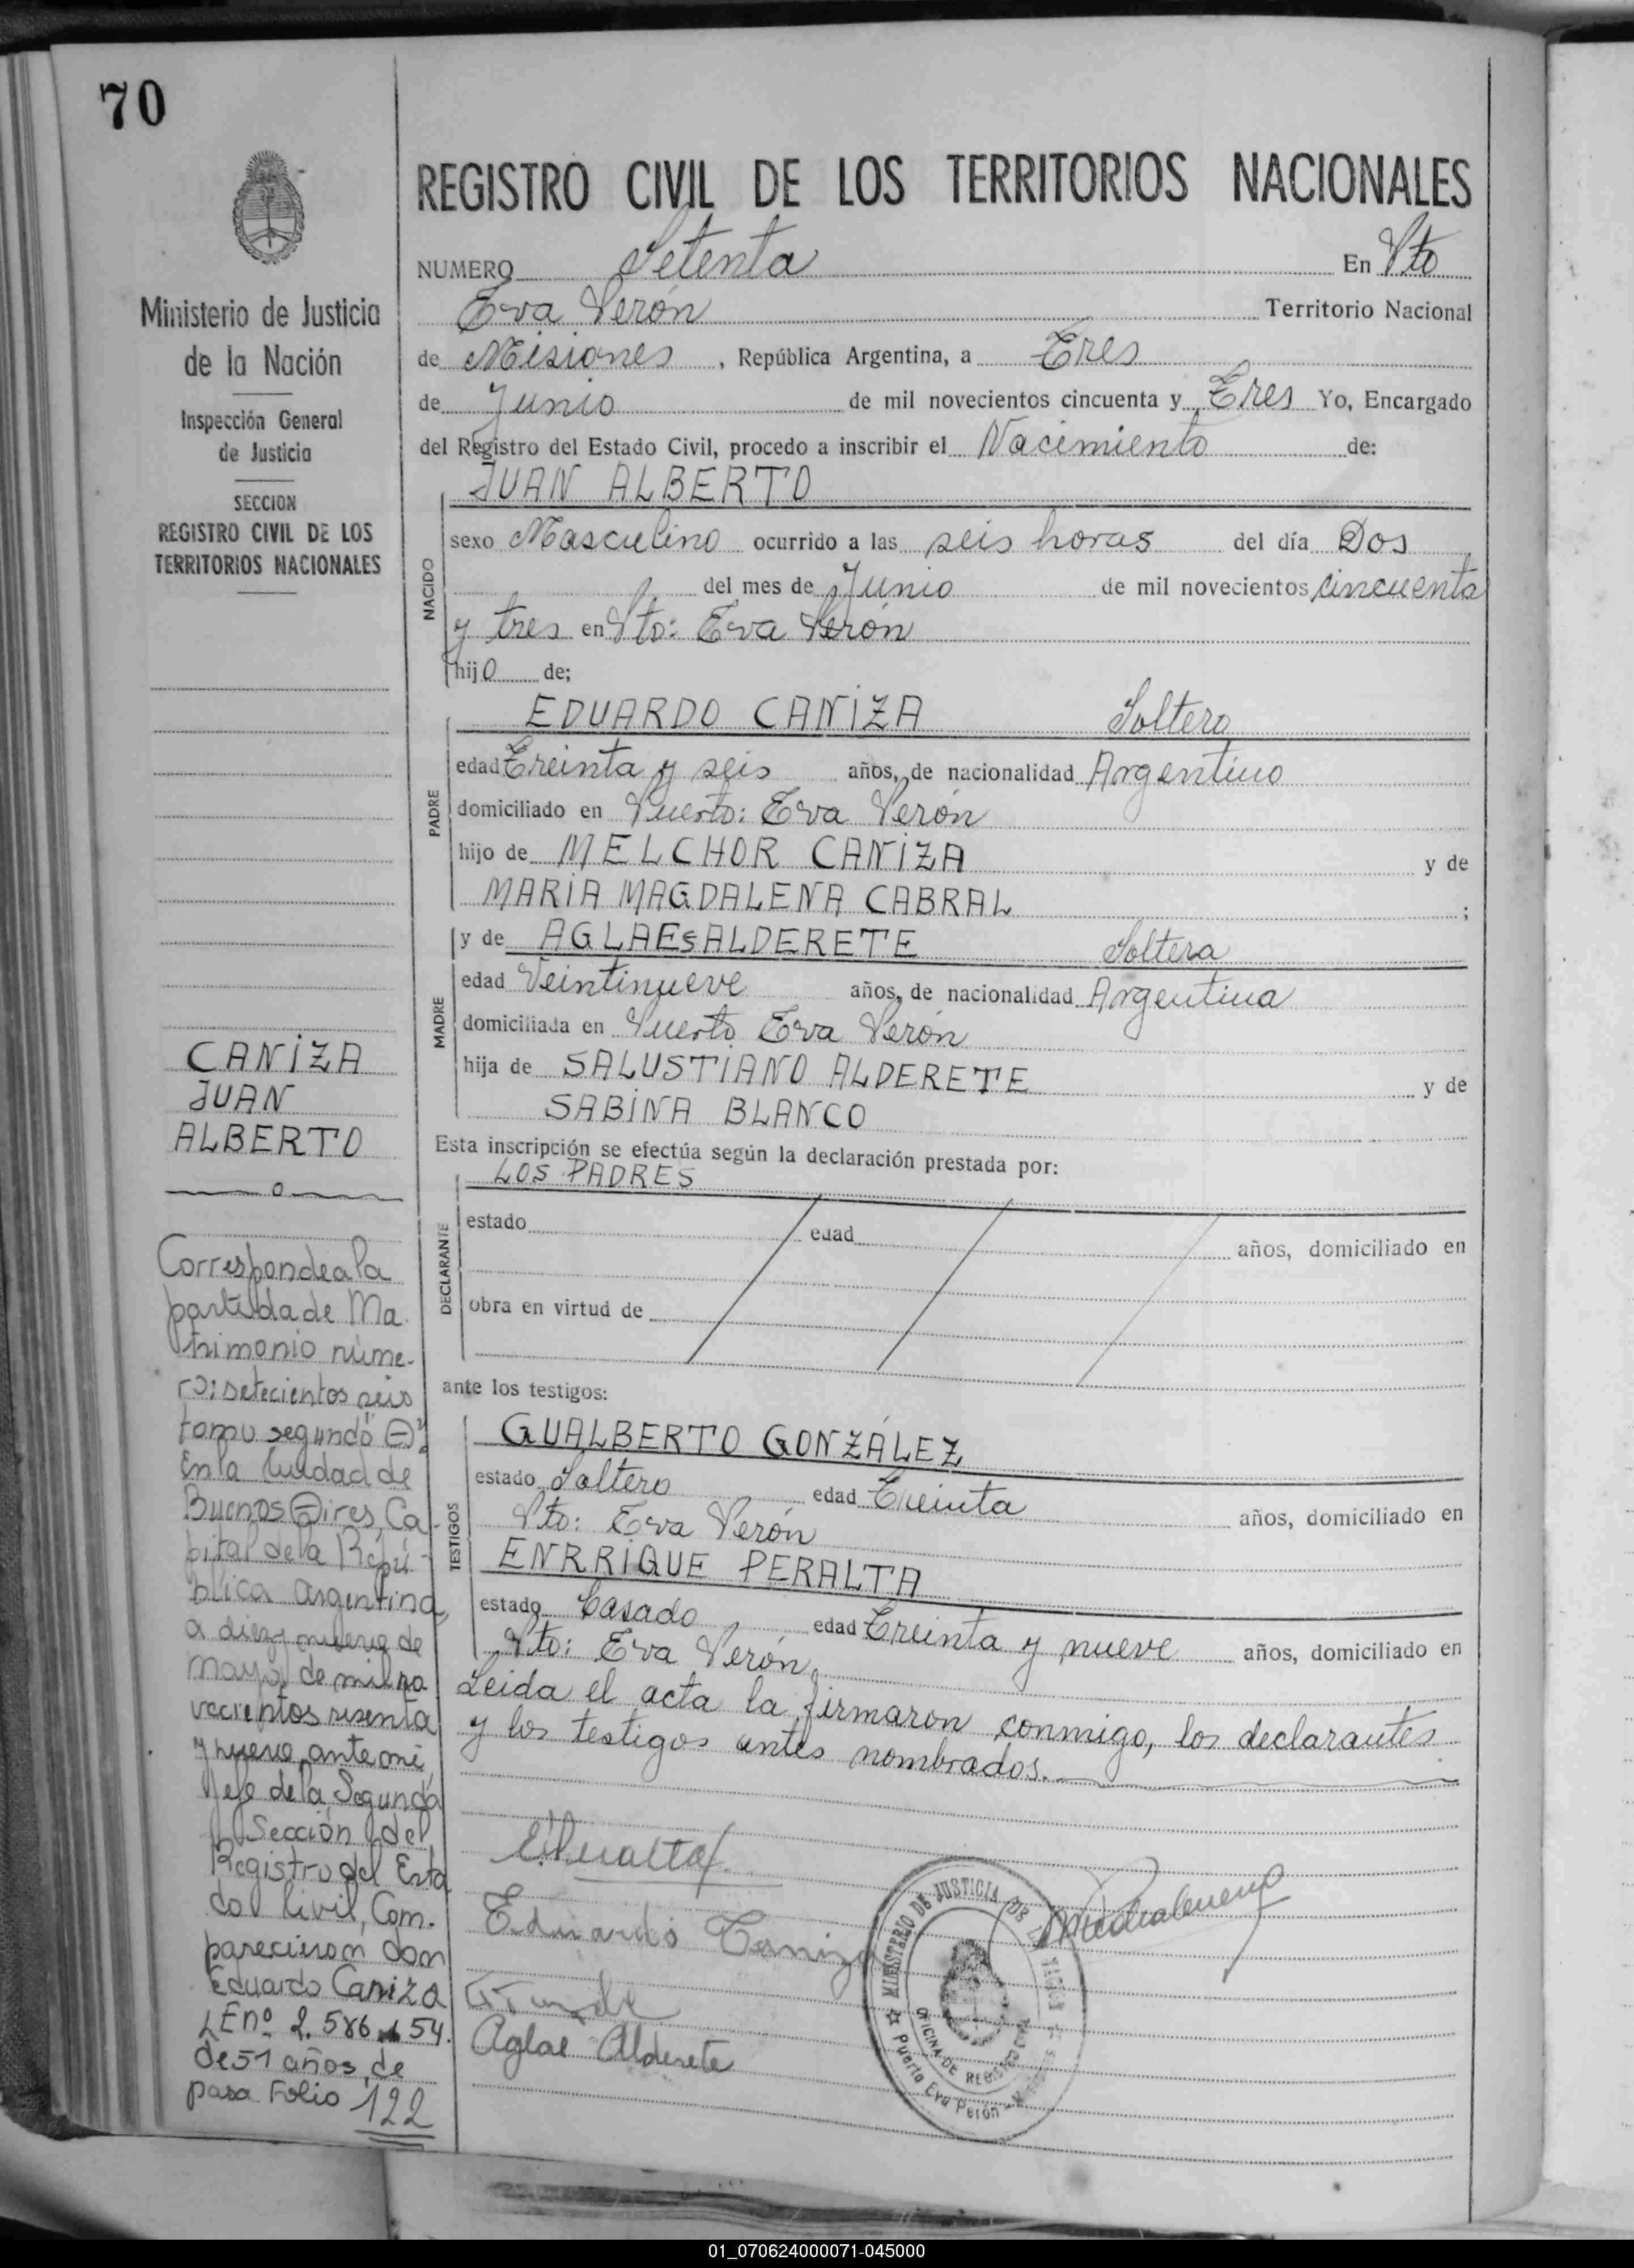 70
Ministerio de Justicia
de la Nación
Inspección General
de Justicia
SECCION
REGISTRO CIVIL DE LOS
TERRITORIOS NACIONALES
CANIZA
JUAN
ALBERTO
Corresponde a la
partida de Ma-
trimonio núme-
ro: setecientos seis
tomo segundo "A"
En la Ciudad de
Buenos Aires, Ca-
pital de la Repú-
blica Argentina,
a diez y nueve de
mayo de mil no
vecientos sesenta
y nueve, ante mi,
Jefe de la Segunda
Sección del
Registro del Esta
do Civil, Com-
parecieron don
Eduardo Caniza
de 51 años, de
pasa Folio 122
REGISTRO CIVIL DE LOS TERRITORIOS NACIONALES
NUMERO Setenta En Pto
Eva Perón Territorio Nacional
de Misiones, República Argentina, a Tres
de Junio de mil novecientos cincuenta y Tres Yo, Encargado
del Registro del Estado Civil, procedo a inscribir el Nacimiento de:
JUAN ALBERTO
NACIDO
sexo Masculino ocurrido a las seis horas del día Dos
del mes de Junio de mil novecientos cincuenta
y tres en Pto: Eva Perón
hijo de;
EDUARDO CANIZA Soltero
PADRE
edad Treinta y seis años, de nacionalidad Argentino
domiciliado en Puerto: Eva Perón
hijo de MELCHOR CANIZA y de
MARIA MAGDALENA CABRAL ;
y de AGLAEsALDERETE Soltera
MADRE
edad Veintinueve años, de nacionalidad Argentina
domiciliada en Puerto Eva Perón
hija de SALUSTIANO ALDERETE y de
SABINA BLANCO
Esta inscripción se efectúa según la declaración prestada por:
LOS PADRES
DECLARANTE
estado edad años, domiciliado en
obra en virtud de
ante los testigos:
GUALBERTO GONZÁLEZ
TESTIGOS
estado Soltero edad Treinta años, domiciliado en
Pto: Eva Perón
ENRRIQUE PERALTA
estado Casado edad Treinta y nueve años, domiciliado en
Pto: Eva Perón,
Leida el acta la firmaron conmigo, los declarantes
y los testigos antes nombrados.
EPeralta
Eduardo Caniza
Aglae Alderete
MINISTERIO DE JUSTICIA DE
OFICINA DE
Puerto Eva Perón
01_070624000071-045000